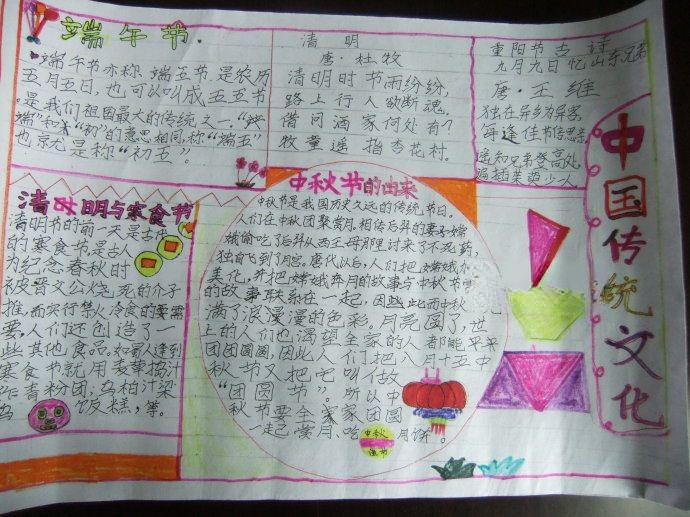 端午节
端午节亦称端五节,是农历
五月五日,也可以叫成五五节
,是我们祖国最大的传统之一。
端"和"初"的意思相同,称"端五"
也就是称"初五"。
清明
唐·杜牧
清明时节雨纷纷,
路上行人欲断魂,
借问酒家何处有?
牧童遥指杏花村。
重阳节古诗
九月九日忆山东兄弟
唐·王维
独在异乡为异客,
每逢佳节倍思亲
遥知兄弟登高处,
遍插茱萸少一人。
中国传统文化
清明与寒食节
清明节的前一天是古代
的寒食节是古人
为纪念春秋时
被晋文公烧死的介子
推,而实行禁火冷食的
要,人们还创造了一
些其他食品。如蜀人逢到
寒食节就用麦草捣汁
青粉团,乌桕汁染
乌饭糕,等。
中秋节的由来
中秋节是我国历史久远的传统节日。
人们在中秋团聚赏月。相传后羿的妻子嫦
娥偷吃了后羿从西王母那里讨来了不死药,
独自飞到了月宫。唐代以后,人们把嫦娥
美化,并把嫦娥奔月的故事与中秋节
的故事联系在一起,因些此而中秋
满了浪漫漫的色彩。月亮圆了,世
上的人们也渴望全家的人都能平平
团团圆圆,因此人们把八月十五中
秋节又把它叫做
"团圆节"。所以中
秋节要全家家团圆
一起赏月、吃月饼。
中秋
佳节